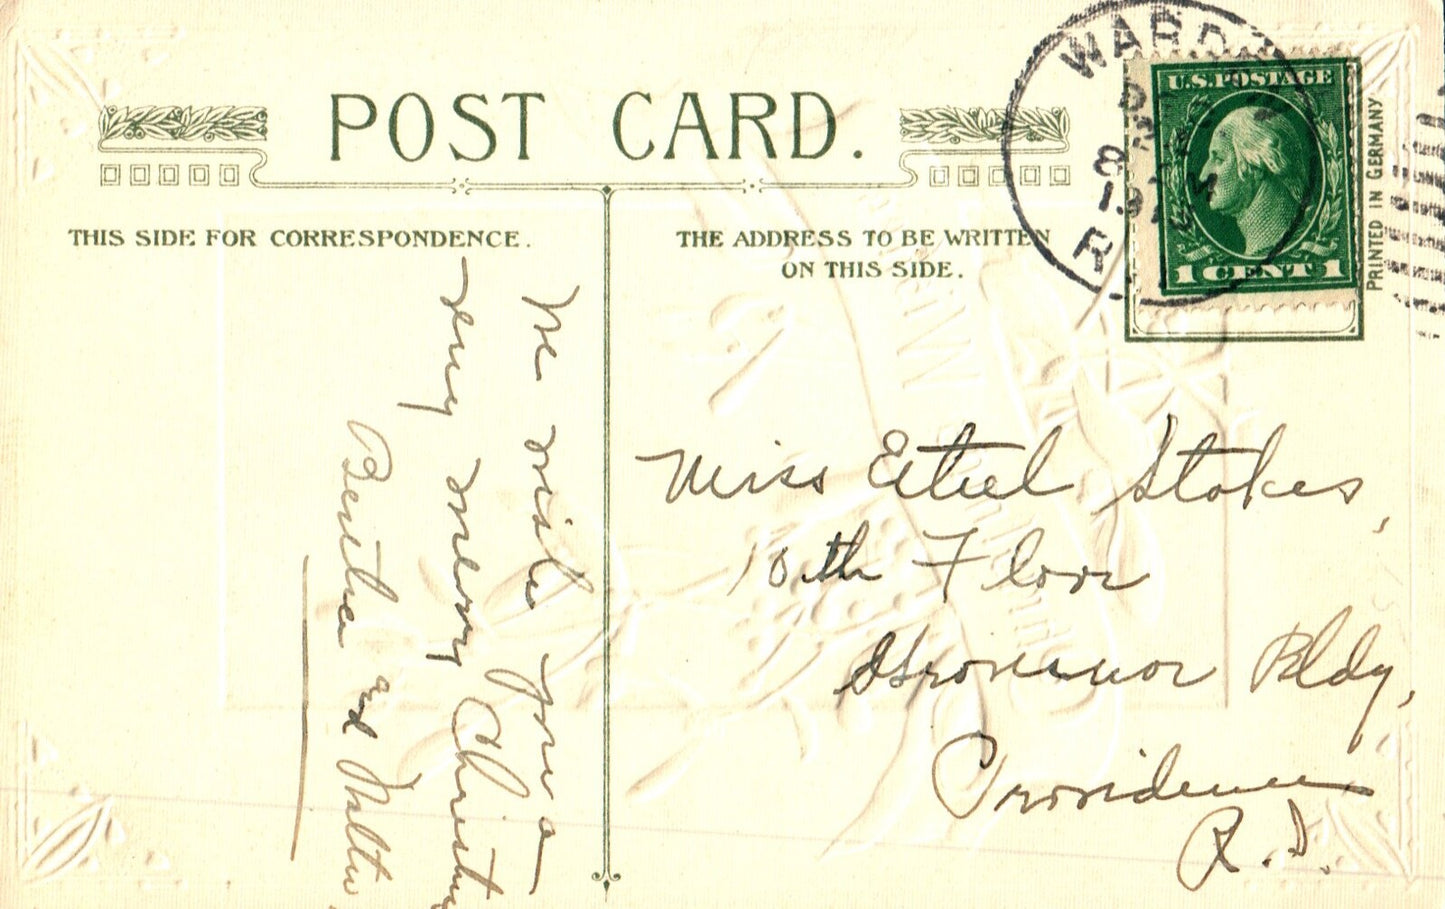 POST CARD.
THIS SIDE FOR CORRESPONDENCE.
THE ADDRESS TO BE WRITTEN
ON THIS SIDE.
U.S. POSTAGE
1 CENT 1
PRINTED IN GERMANY
We wish you a
very merry Christmas
Bertha and Walter
Miss Ethel Stokes,
10th Floor
Grosvenor Bldg,
Providence
R.I.